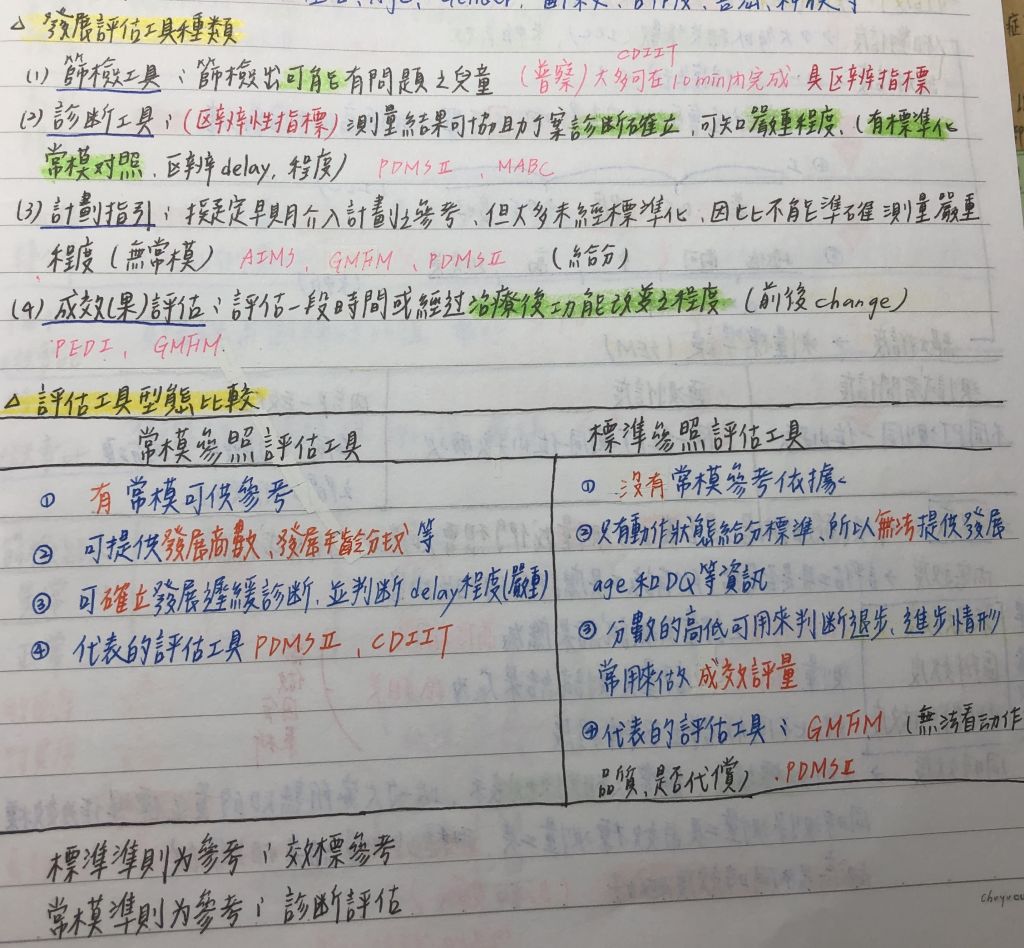 Age, Gender,
△ 發展評估工具種類
CDIIT
(1) 篩檢工具：篩檢出可能有問題之兒童 (普察) 大多可在10min內完成 具区辨指標
(2) 診断工具：(区辨性指標) 測量結果可協助于案診断確立, 可知嚴重程度, (有標準化
常模对照, 区辨delay, 程度) PDMSⅡ、MABC
(3) 計劃指引：擬定早期介入計劃之參考, 但大多未經標準化, 因此不能準確測量嚴重
程度 (無常模) AIMS、GMFM、PDMSⅡ (給分)
(4) 成效(果)評估：評估一段時間或經过治療後功能改变之程度 (前後change)
PEDI、GMFM.
△ 評估工具型態比較
常模參照評估工具
① 有常模可供參考
② 可提供發展商數、發展年齡分数等
③ 可確立發展遲緩診断, 並判断delay程度(嚴重)
④ 代表的評估工具PDMSⅡ、CDIIT
標準參照評估工具
① 沒有常模參考依據
②只有動作狀態給分標準, 所以無法提供發展
age和DQ等資訊
③ 分數的高低可用來判断退步、進步情形
常用來做成效評量
④代表的評估工具：GMFM (無法看动作
品質, 是否代償)、PDMSⅡ
標準準則为參考：效標參考
常模準則为參考：診断評估